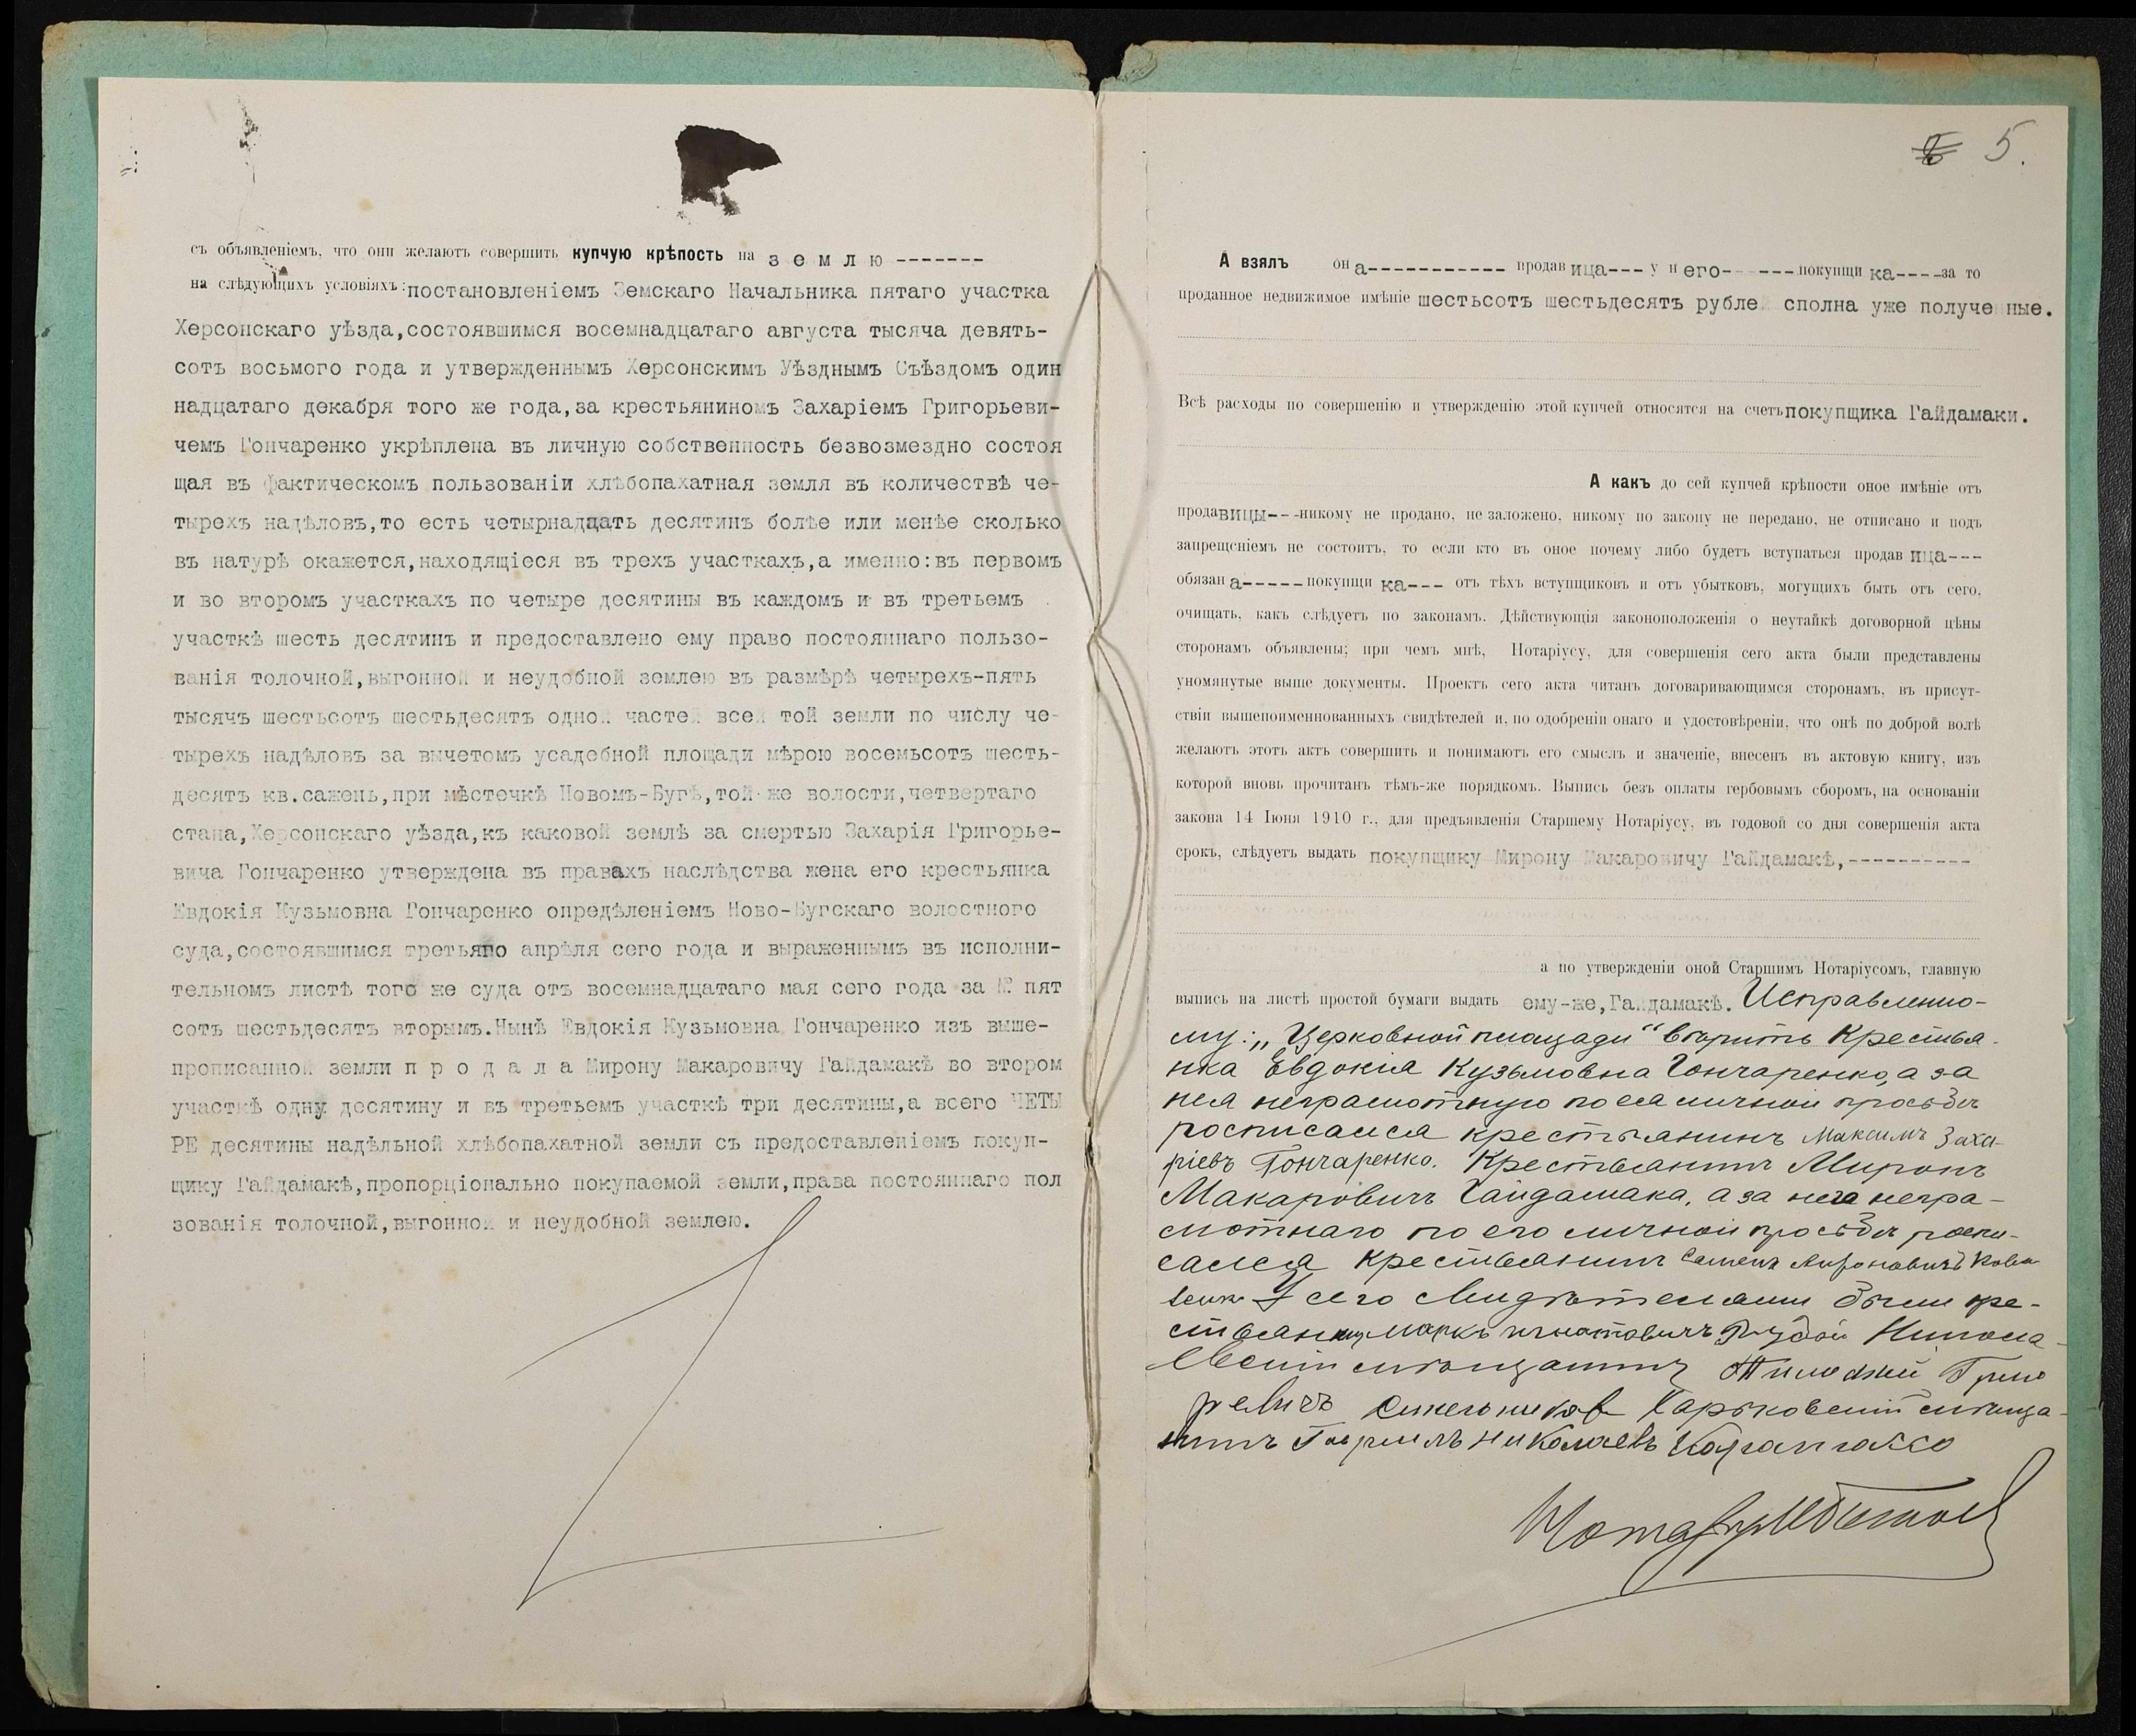 съ объявленіемъ, что они желаютъ совершить купчую крѣпость на з е м л ю -------
на слѣдующихъ условіяхъ: постановленіемъ Земскаго Начальника пятаго участка
Херсонскаго уѣзда, состоявшимся восемнадцатаго августа тысяча девять-
сотъ восьмого года и утвержденнымъ Херсонскимъ Уѣзднымъ Съѣздомъ один
надцатаго декабря того же года, за крестьяниномъ Захаріемъ Григорьеви-
чемъ Гончаренко укрѣплена въ личную собственность безвозмездно состоя
щая въ фактическомъ пользованіи хлѣбопахатная земля въ количествѣ че-
тырехъ надѣловъ, то есть четырнадцать десятинъ болѣе или менѣе сколько
въ натурѣ окажется, находящіеся въ трехъ участкахъ, а именно: въ первомъ
и во второмъ участкахъ по четыре десятины въ каждомъ и въ третьемъ
участкѣ шесть десятинъ и предоставлено ему право постояннаго пользо-
ванія толочной, выгонной и неудобной землею въ размѣрѣ четырехъ-пять
тысячъ шестьсотъ шестьдесятъ одной частей всей той земли по числу че-
тырехъ надѣловъ за вычетомъ усадебной площади мѣрою восемьсотъ шесть-
десятъ кв. сажень, при мѣстечкѣ Новомъ-Бугѣ, той же волости, четвертаго
стана, Херсонскаго уѣзда, къ каковой землѣ за смертью Захарія Григорье-
вича Гончаренко утверждена въ правахъ наслѣдства жена его крестьянка
Евдокія Кузьмовна Гончаренко опредѣленіемъ Ново-Бугскаго волостного
суда, состоявшимся третьяго апрѣля сего года и выраженнымъ въ исполни-
тельномъ листѣ того же суда отъ восемнадцатаго мая сего года за № пят
сотъ шестьдесятъ вторымъ. Нынѣ Евдокія Кузьмовна Гончаренко изъ выше-
прописанной земли п р о д а л а Мирону Макаровичу Гайдамакѣ во втором
участкѣ одну десятину и въ третьемъ участкѣ три десятины, а всего ЧЕТЫ
РЕ десятины надѣльной хлѣбопахатной земли съ предоставленіемъ покуп-
щику Гайдамакѣ, пропорціонально покупаемой земли, права постояннаго пол
зованія толочной, выгонной и неудобной землею.
5.
А взялъ он а----------- продав ица--- у н его------ покупщи ка----за то
проданное недвижимое имѣніе шестьсотъ шестьдесятъ рублей сполна уже полученные.
Всѣ расходы по совершенію и утвержденію этой купчей относятся на счетъ покупщика Гайдамаки.
А какъ до сей купчей крѣпости оное имѣніе отъ
продавицы---никому не продано, не заложено, никому по закону не передано, не отписано и подъ
запрещеніемъ не состоитъ, то если кто въ оное почему либо будетъ вступаться продав ица---
обязан а-----покупщи ка--- отъ тѣхъ вступщиковъ и отъ убытковъ, могущихъ быть отъ сего,
очищать, какъ слѣдуетъ по законамъ. Дѣйствующія законоположенія о неутайкѣ договорной цѣны
сторонамъ объявлены; при чемъ мнѣ, Нотаріусу, для совершенія сего акта были представлены
уномянутые выше документы. Проектъ сего акта читанъ договаривающимся сторонамъ, въ присут-
ствіи вышепоименнованныхъ свидѣтелей и, по одобреніи онаго и удостовѣреніи, что онѣ по доброй волѣ
желаютъ этотъ актъ совершить и понимаютъ его смыслъ и значеніе, внесенъ въ актовую книгу, изъ
которой вновь прочитанъ тѣмъ-же порядкомъ. Выпись безъ оплаты гербовымъ сборомъ, на основаніи
закона 14 Іюня 1910 г., для предъявленія Старшему Нотаріусу, въ годовой со дня совершенія акта
срокъ, слѣдуетъ выдать покупщику Мирону Макаровичу Гайдамакѣ,----------
а по утвержденіи оной Старшимъ Нотаріусомъ, главную
выпись на листѣ простой бумаги выдать ему-же, Гайдамакѣ. Исправленно-
му: „Церковной площади" вѣрить Крестья-
нка Евдокія Кузьмовна Гончаренко, а за
нея неграмотную по ея личной просьбѣ
росписался крестьянинъ Максимъ Заха-
ріевъ Гончаренко. Крестьянинъ Миронъ
Макаровичъ Гайдамака, а за него негра-
мотнаго по его личной просьбѣ роспи-
сался крестьянинъ Семенъ Мироновичъ
У сего свидѣтелями были кре-
стьянинъ Маркъ Игнатовичъ Рудой Никола-
евскій мѣщанинъ Тимофей Григо
рьевичъ Синельников Харьковскій мѣща-
нинъ Гавріилъ Николаевъ
Нотаріусъ